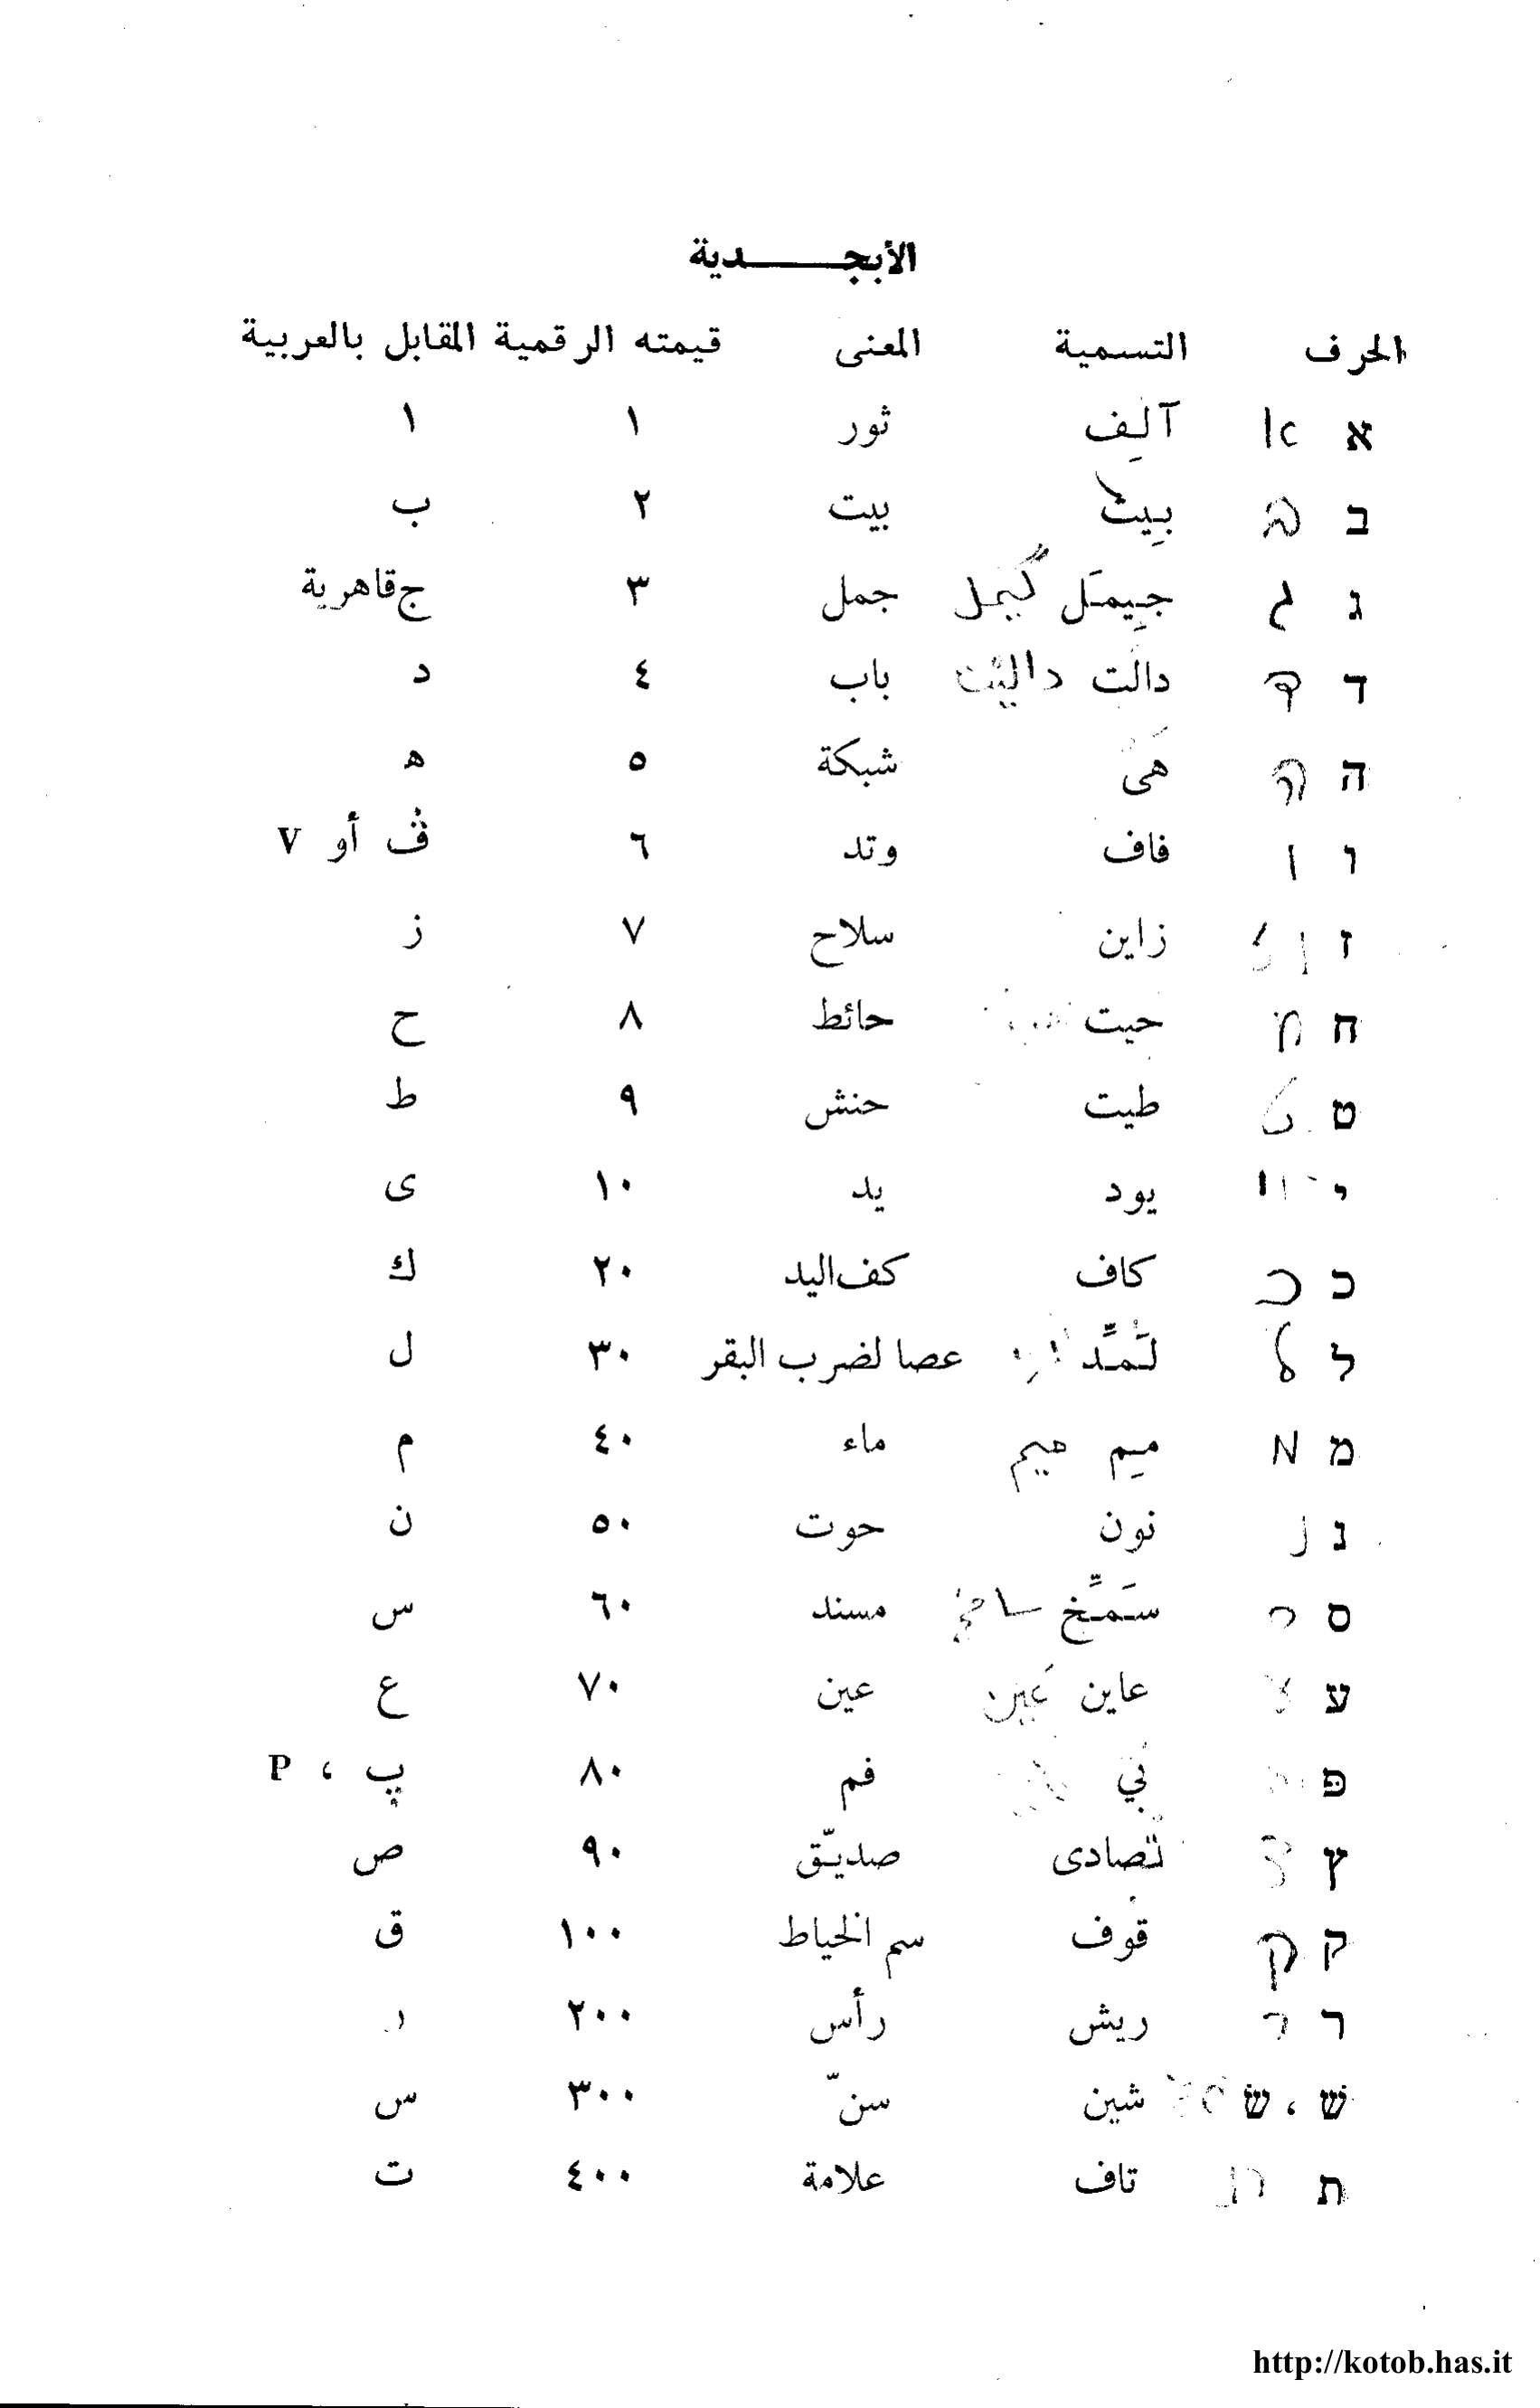 الأبجـــــدية
الحرف التسمية المعنى قيمته الرقمية المقابل بالعربية
א آلِف ثور ١ ١
ב بيت بيت ٢ ب
ג جيمَل گيمل جمل ٣ ج قاهرية
ד دالت داليت باب ٤ د
ה هى شبكة ٥ ه
ו فاف وتد ٦ ڤ أو V
ז زاين سلاح ٧ ز
ח حيت حائط ٨ ح
ט طيت حنش ٩ ط
י يود يد ١٠ ى
כ كاف كف اليد ٢٠ ك
ל لَمِّد عصا لضرب البقر ٣٠ ل
מ ميم ميم ماء ٤٠ م
נ نون حوت ٥٠ ن
ס سَمِّخ مسند ٦٠ س
ע عاين عَين عين ٧٠ ع
פ پي فم ٨٠ پ ، P
ץ تصادى صديّق ٩٠ ص
ק قوف سم الخياط ١٠٠ ق
ר ريش رأس ٢٠٠ ر
שׁ ، שׂ شين سنّ ٣٠٠ س
ת تاف علامة ٤٠٠ ت
http://kotob.has.it